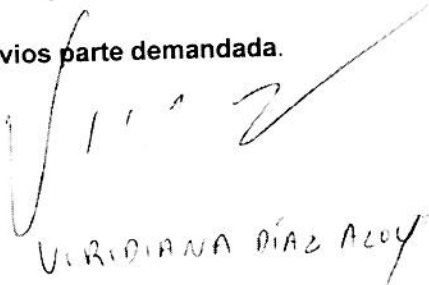 vios parte demandada.
VIRIDIANA DÍAZ ALOY